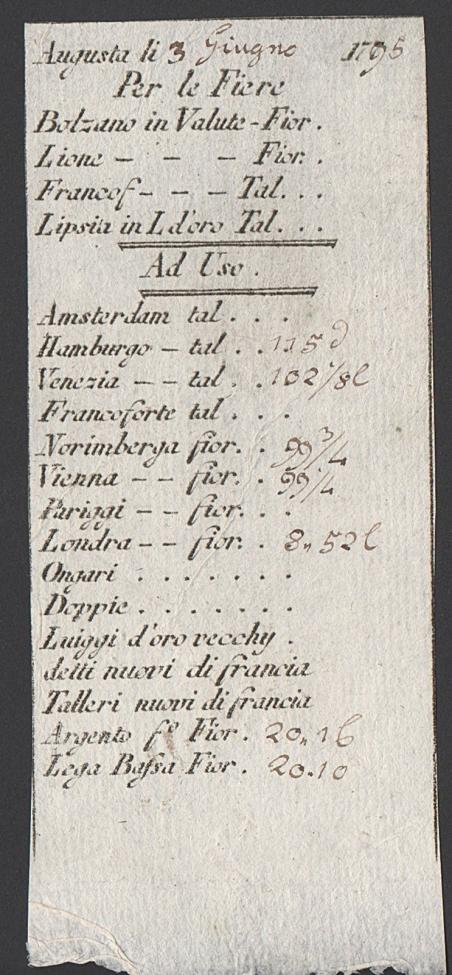 Augusta li 3 Giugno 1795
Per le Fiere
Bolzano in Valute - Fior .
Lione - - - Fior. .
Francof - - - Tal. . .
Lipsia in L d'oro Tal. . .
Ad Uso .
Amsterdam tal . . .
Hamburgo - tal . . 115 d
Venezia - - tal . . 102 1/8 l
Francoforte tal . . .
Norimberga fior. . 99 3/4
Vienna - - fior. . 99 1/4
Pariggi - - fior. . .
Londra - - fior. . 8,, 52 l
Ongari . . . . . . .
Doppie . . . . . . .
Luiggi d'oro vecchy .
detti nuovi di francia
Talleri nuovi di francia
Argento fº Fior. 20,, 16
Lega Baſsa Fior. 20.10